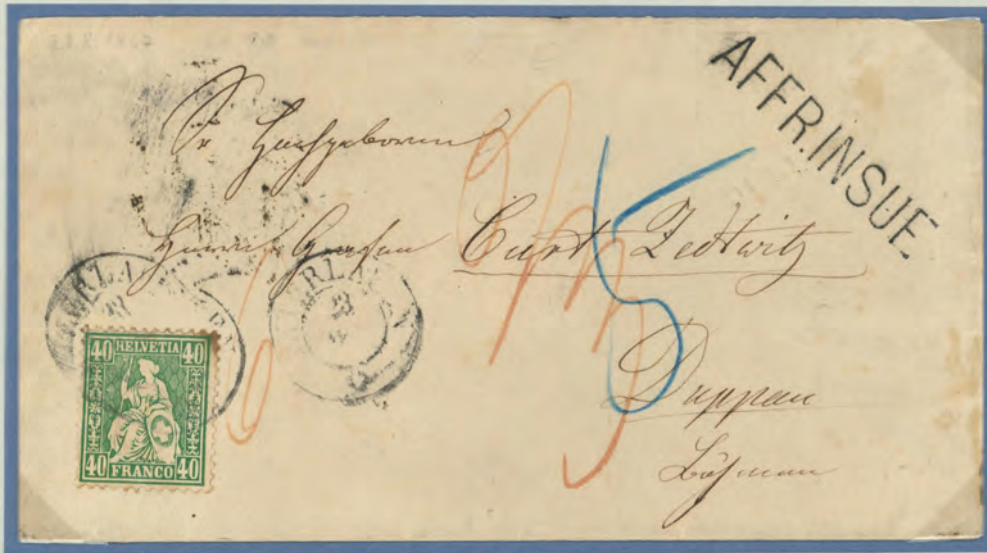 AFFR. INSUE
Sr Hochgeboren
Herrn Grafen Curt Zedtwitz
5
Duppau
Böhmen
40 HELVETIA 40
40 FRANCO 40